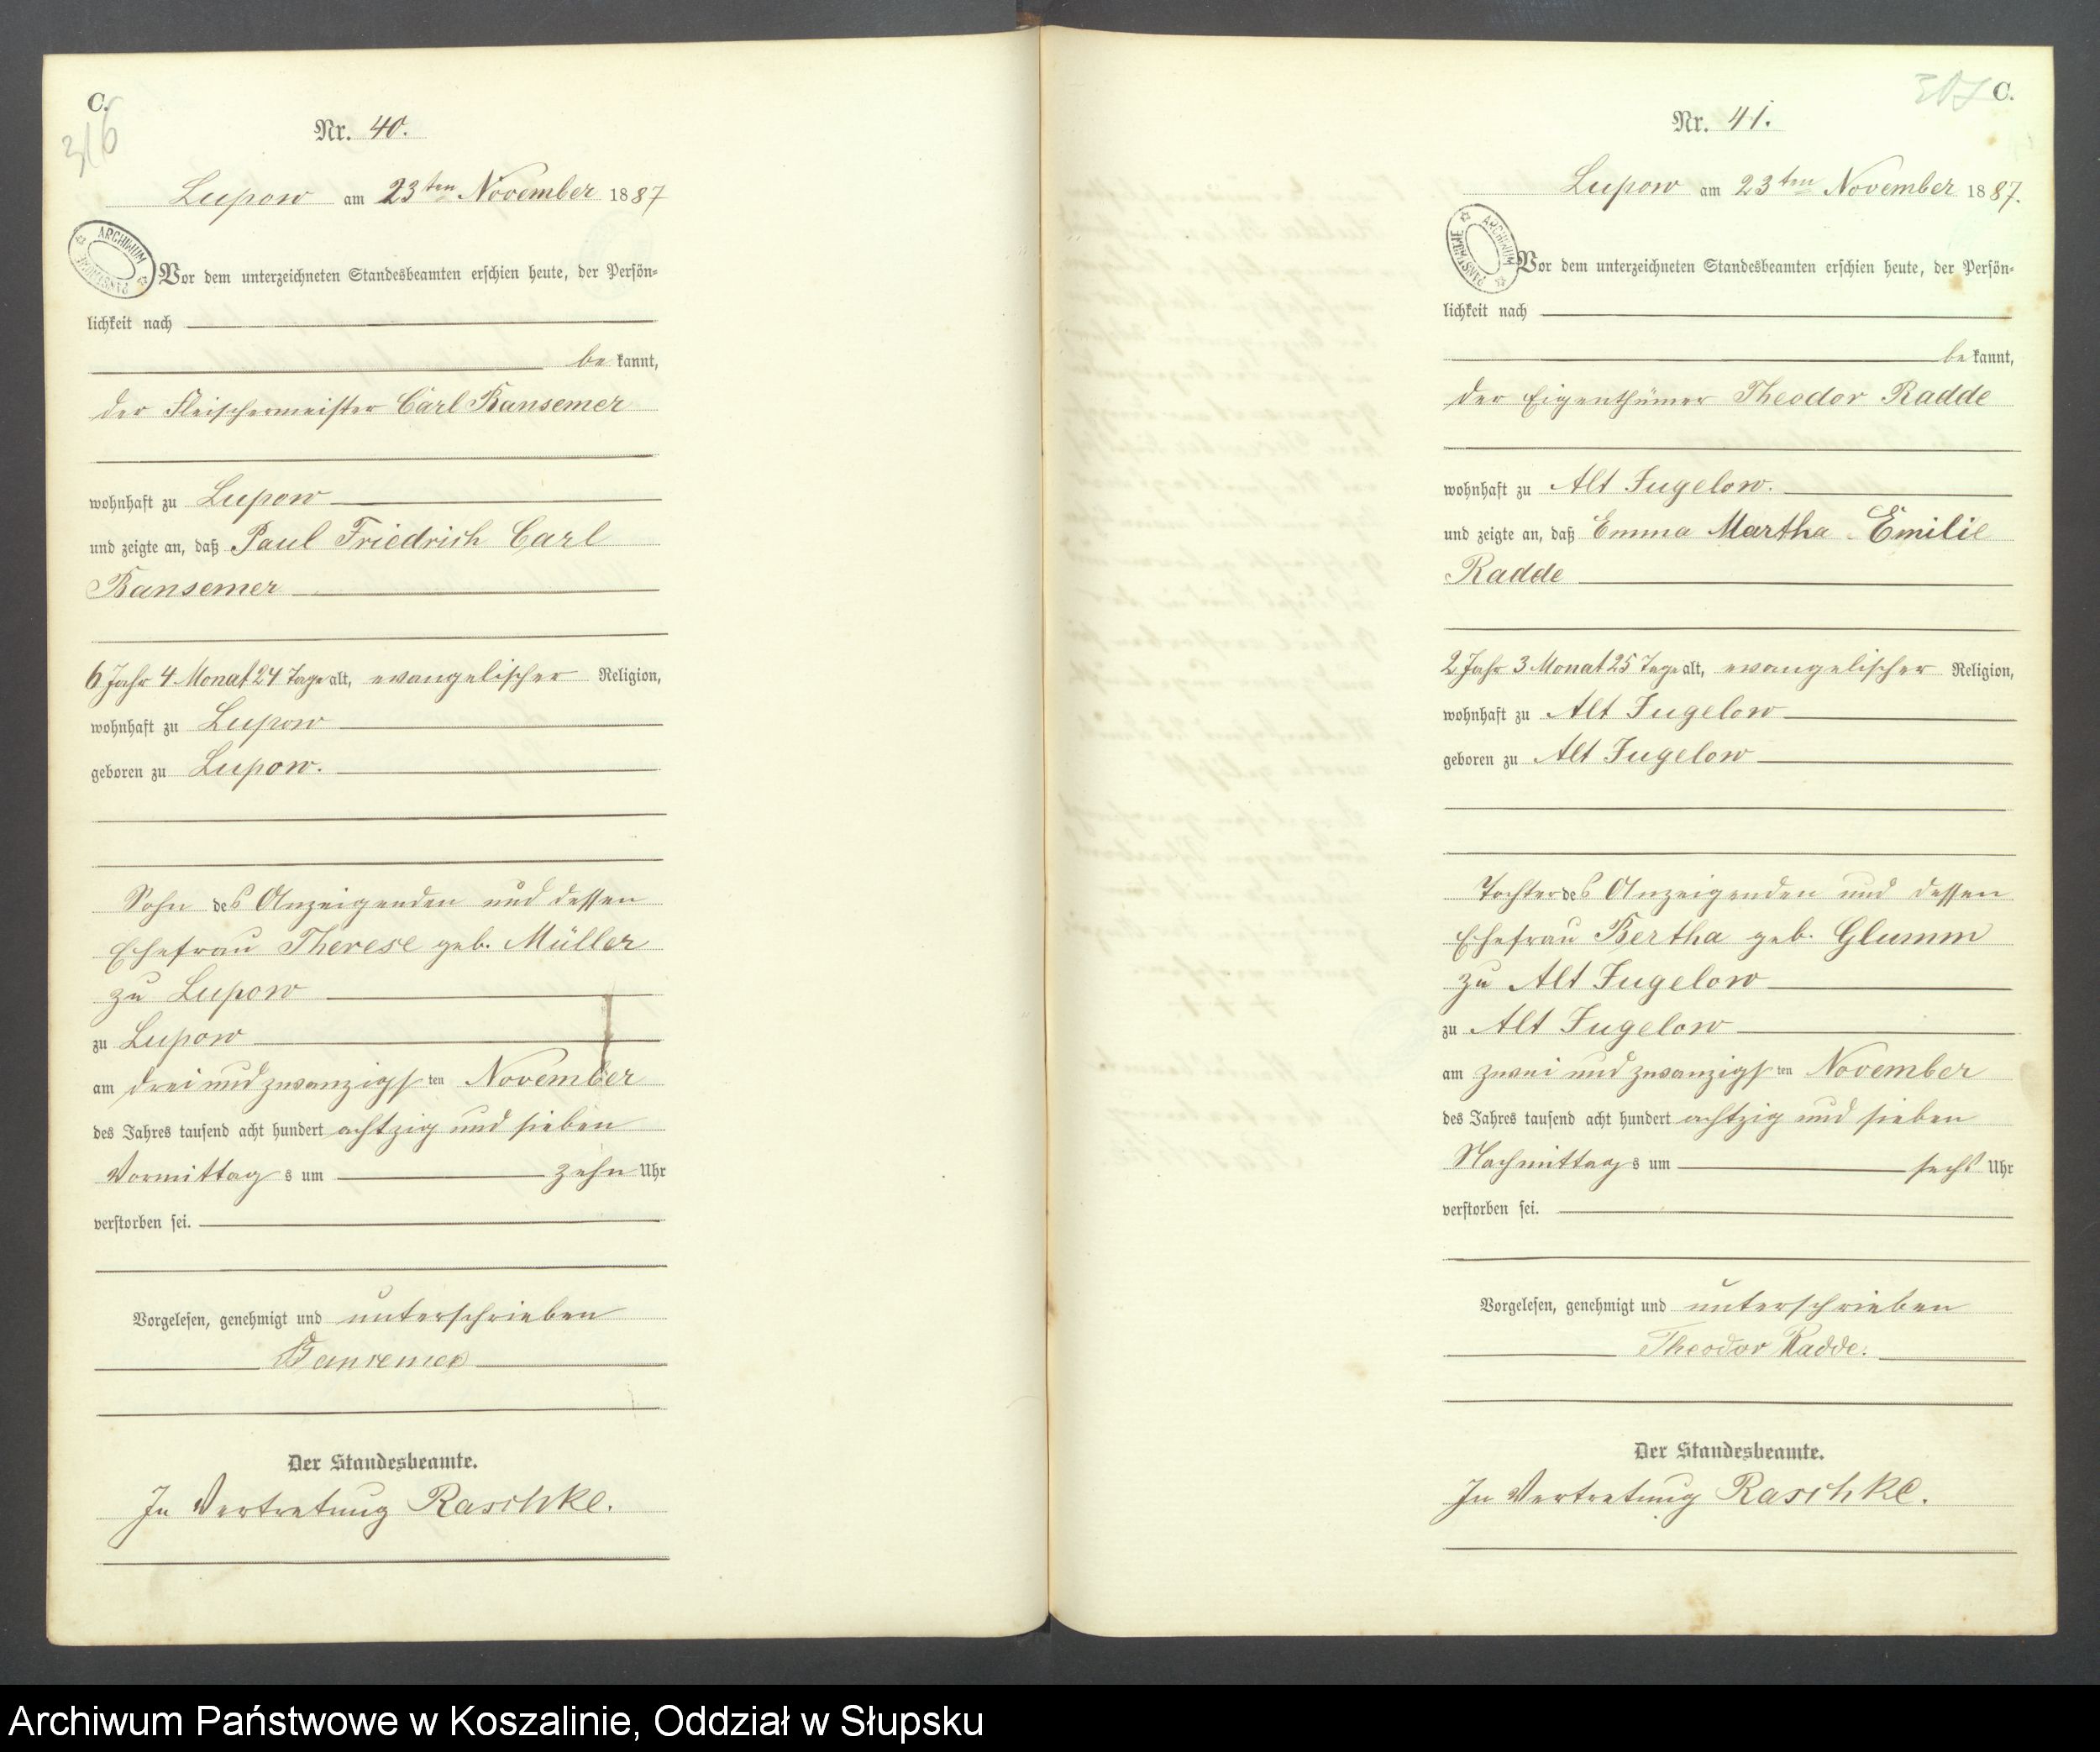 C.
316
Nr. 40.
Lupow am 23ten November 1887
ARCHIWUM PAŃSTWOWE
Vor dem unterzeichneten Standesbeamten erschien heute, der Persön=
lichkeit nach
be kannt,
der Fleischermeister Carl Bansemer
wohnhaft zu Lupow
und zeigte an, daß Paul Friedrich Carl
Bansemer
6 Jahr 4 Monat 24 Tage alt, evangelischer Religion,
wohnhaft zu Lupow
geboren zu Lupow.
Sohn des Anzeigenden und dessen
Ehefrau Therese geb. Müller
zu Lupow
zu Lupow
am drei und zwanzigsten November
des Jahres tausend acht hundert achtzig und sieben
Vormittags um zehn Uhr
verstorben sei.
Vorgelesen, genehmigt und unterschrieben
Bansemer
Der Standesbeamte.
In Vertretung Raschke.
C.
Nr. 41.
Lupow am 23ten November 1887.
ARCHIWUM PAŃSTWOWE
Vor dem unterzeichneten Standesbeamten erschien heute, der Persön=
lichkeit nach
be kannt,
der Eigenthümer Theodor Radde
wohnhaft zu Alt Jugelow.
und zeigte an, daß Emma Martha Emilie
Radde
2 Jahr 3 Monat 25 Tage alt, evangelischer Religion,
wohnhaft zu Alt Jugelow
geboren zu Alt Jugelow
Tochter des Anzeigenden und dessen
Ehefrau Bertha geb. Glumm
zu Alt Jugelow
zu Alt Jugelow
am zwei und zwanzigsten November
des Jahres tausend acht hundert achtzig und sieben
Nachmittags um sechs Uhr
verstorben sei.
Vorgelesen, genehmigt und unterschrieben
Theodor Radde.
Der Standesbeamte.
In Vertretung Raschke.
Archiwum Państwowe w Koszalinie, Oddział w Słupsku